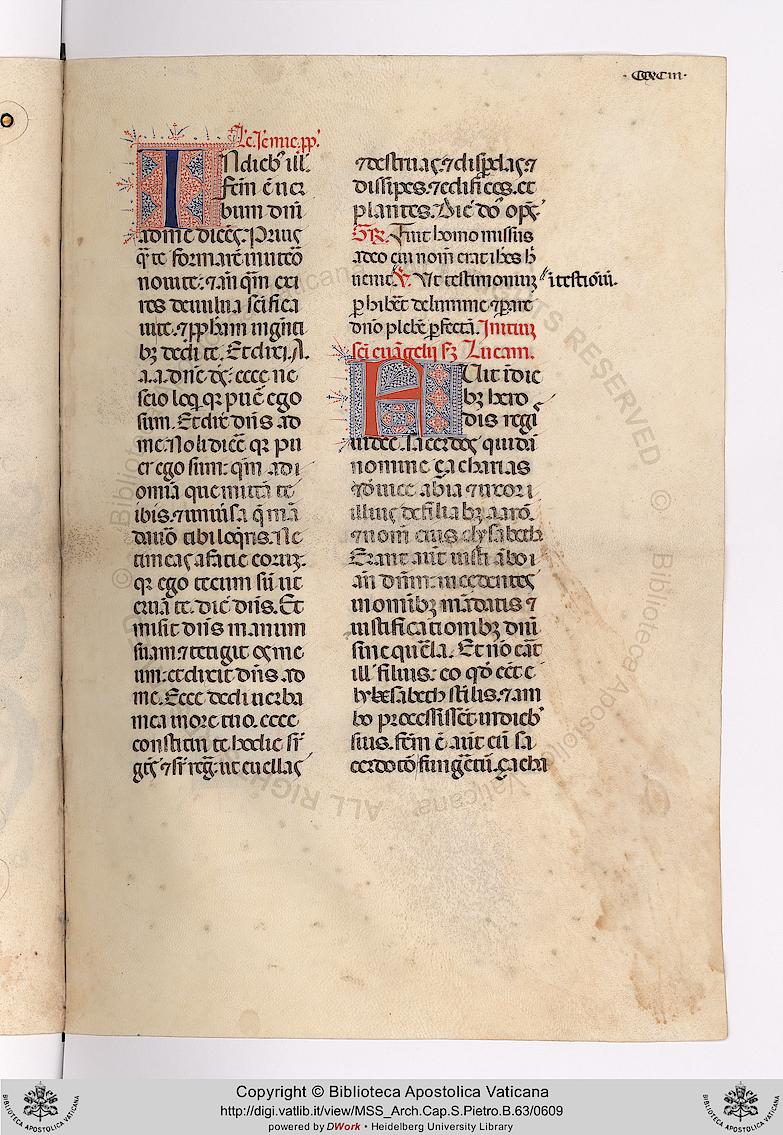 ·CCXCIII·
Lc̄. Ieremie. pp̄.
IN dieb; ill̄.
fc̄m ē uer
bum dn̄i
ad me dicēs. Prius
q̄ te formarē in uteō
noui te: ⁊ an̄ q̄m exi
res de uulua sc̄ifica
ui te. ⁊ pp̄ham in gn̄ti
b; dedi te. Et dixi. A.
a. a. dn̄e ds̄: ecce ne
scio loq̄ qr puē ego
sum. Et dix̄ dn̄s ad
me. Noli dicē qr pu
er ego sum: qm̄ ad i
omīa que mittā te
ibis. ⁊ uniu̾sa q̄ mā
dauō tibi loq̄ris. Ne
timeas a facie eorū.
qr ego tecum sū ut
eruā te. dic̄ dn̄s. Et
misit dn̄s manum
suam ⁊ tetigit os me
um: et dixit dn̄s ad
me. Ecce dedi uerba
mea in ore tuo. ecce
constitui te hodie sr̄
gēs ⁊ sr̄ reḡ. ut euellas
⁊ destruas. ⁊ disp̄das. ⁊
dissipes. ⁊ edifices. et
plantes. Dic̄ dō ops̄.
Gr̄. Fuit homo missus
a deo cui nom̄ erat ioh̄es h̄
uenit. V̄. Ut testimoniū
i testiōm̄.
p̄hibēt de lumine ⁊ p̄are
dn̄o plebē p̄fectā. Initiū
sc̄i euāgelij sz̄ Lucam.
FUit ī die
b; hero
dis regī
iudeē. sacerdos quidā
nomine çacharias
de uice abia ⁊ uxor i
illius de filiab; aarō.
⁊ nom̄ eius elysabeth
Erant aut̄ iusti ābo i
an̄ dn̄m: incedentes
in omīb; mādatis ⁊
iustificatiōib; dn̄i
sine quēla. Et nō eāt
ill̄ filius: eo qd̄ eēt e
lysabeth stilis. ⁊ am
bo processissēt in dieb;
suis. fc̄m ē aut̄ cū sa
cerdotō fungēt̄. çacha
Copyright © Biblioteca Apostolica Vaticana
http://digi.vatlib.it/view/MSS_Arch.Cap.S.Pietro.B.63/0609
powered by DWork • Heidelberg University Library